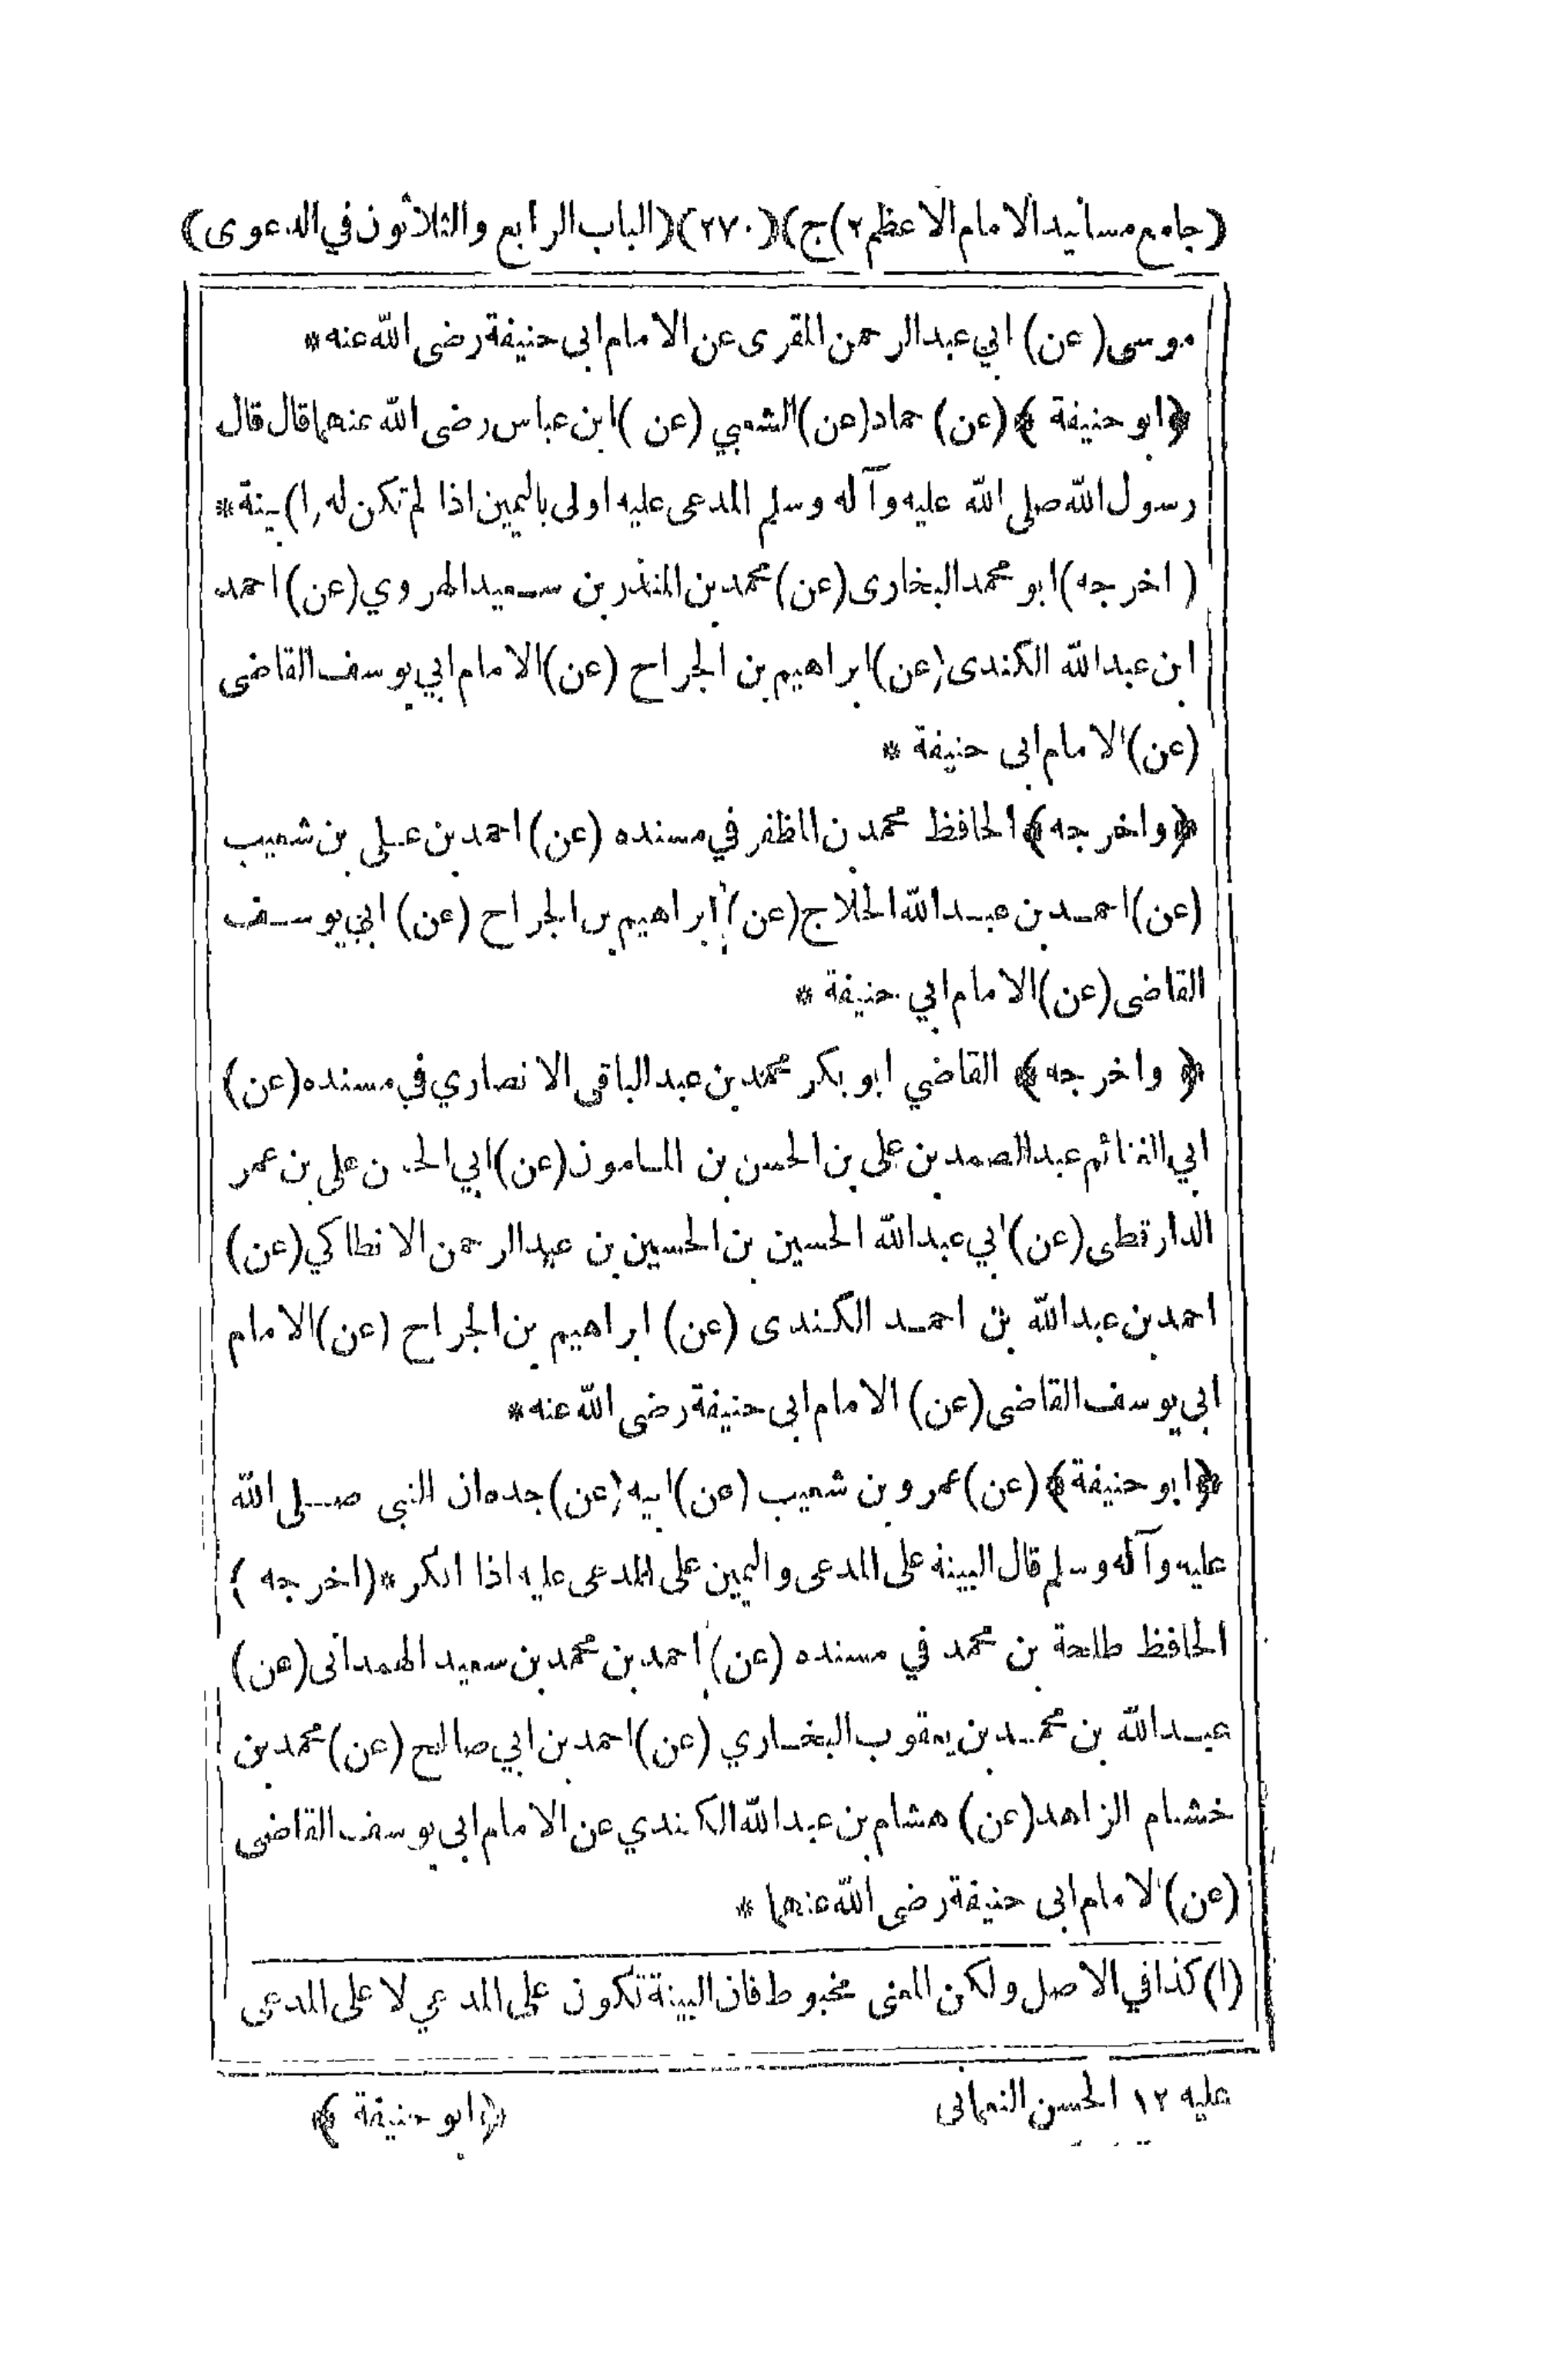 (جامع مسانيد الامام الاعظم ٢) ج) (٢٧٠) (الباب الرابع والثلاثون في الدعوى)
موسى (عن) ابي عبد الرحمن المقرى عن الامام ابى حنيفة رضى الله عنه *
﴿ابو حنيفة﴾ (عن) حماد (عن) الشعبي (عن) ابن عباس رضى الله عنهما قال قال
رسول الله صلى الله عليه وآله وسلم المدعى عليه اولى باليمين اذا لم تكن له (١) بينة *
(اخرجه) ابو محمد البخارى (عن) محمد بن المنذر بن سعيد الهروي (عن) احمد
ابن عبد الله الكندى (عن) ابراهيم بن الجراح (عن) الامام ابي يوسف القاضى
(عن) الامام ابى حنيفة *
﴿واخرجه﴾ الحافظ محمد بن المظفر في مسنده (عن) احمد بن على بن شعيب
(عن) احمد بن عبد الله الحلاج (عن) ابراهيم بن الجراح (عن) ابي يوسف
القاضى (عن) الامام ابي حنيفة *
﴿واخرجه﴾ القاضي ابو بكر محمد بن عبد الباقى الانصاري في مسنده (عن)
ابي الغنائم عبد الصمد بن على بن الحسن بن المامون (عن) ابي الحسن على بن عمر
الدارقطى (عن) ابي عبد الله الحسين بن الحسين بن عبد الرحمن الانطاكي (عن)
احمد بن عبد الله بن احمد الكندى (عن) ابراهيم بن الجراح (عن) الامام
ابي يوسف القاضى (عن) الامام ابى حنيفة رضى الله عنه *
﴿ابو حنيفة﴾ (عن) عمرو بن شعيب (عن) ابيه (عن) جده ان النبى صلى الله
عليه وآله وسلم قال البينة على المدعى واليمين على المدعى عليه اذا انكر * (اخرجه)
الحافظ طلحة بن محمد في مسنده (عن) احمد بن محمد بن سعيد الهمدانى (عن)
عبد الله بن محمد بن يعقوب البخاري (عن) احمد بن ابي صالح (عن) محمد بن
خشنام الزاهد (عن) هشام بن عبد الله الكندي عن الامام ابى يوسف القاضى
(عن) الامام ابى حنيفة رضى الله عنهما *
(١) كذا في الاصل ولكن المعنى مخبوط فان البينة تكون على المدعي لا على المدعى
عليه ١٢ الحسن النعمانى
﴿ابو حنيفة﴾